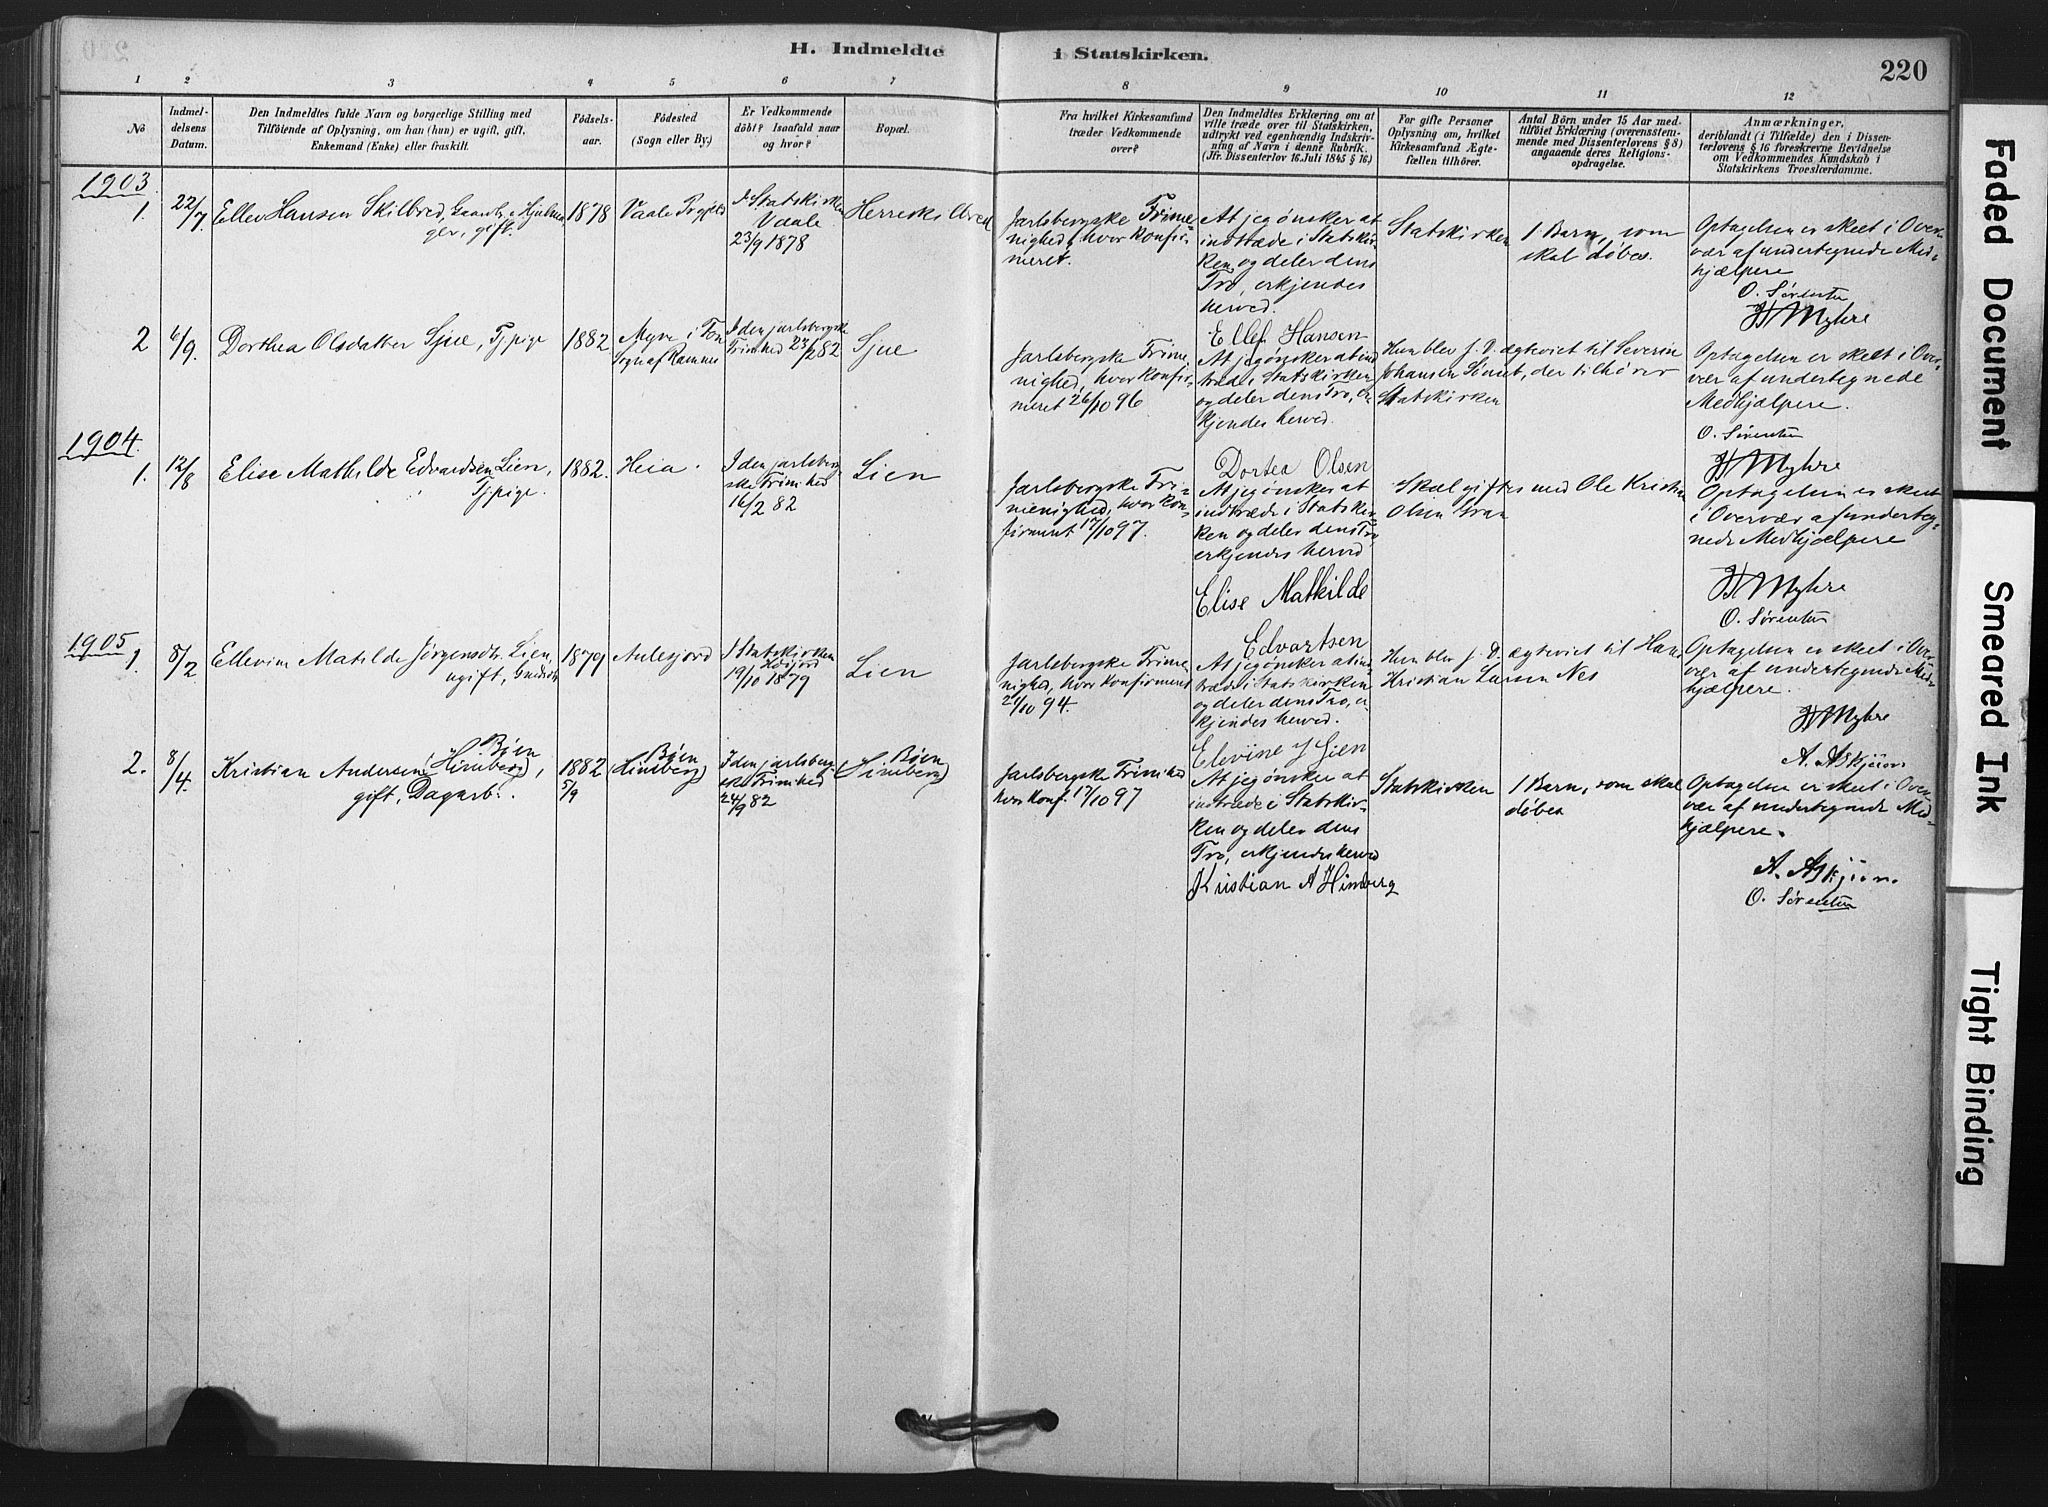 H. Indmeldte i Statskirken.
220
1 2 3 4 5 6 7 8 9 10 11 12
No
Indmel-
delsens
Datum.
Den Indmeldtes fulde Navn og borgerlige Stilling med
Tilföiende af Oplysning, om han (hun) er ugift, gift,
Enkemand (Enke) eller fraskilt.
Födsels-
aar.
Födested
(Sogn eller By.)
Er Vedkommende
döbt? Isaafald naar
og hvor?
Bopæl.
Fra hvilket Kirkesamfund
træder Vedkommende
over?
Den Indmeldtes Erklæring om at
ville træde over til Statskirken,
udtrykt ved egenhændig Indskriv-
ning af Navn i denne Rubrik.
(Jfr. Dissenterlov 16. Juli 1845 § 16.)
For gifte Personer
Oplysning om, hvilket
Kirkesamfund Ægte-
fællen tilhörer.
Antal Börn under 15 Aar med-
tilföiet Erklæring (overensstem-
mende med Dissenterlovens § 8)
angaaende deres Religions-
opdragelse.
Anmærkninger,
deriblandt (i Tilfælde) den i Dissen-
terlovens § 16 foreskrevne Bevidnelse
om Vedkommendes Kundskab i
Statskirkens Troeslærdomme.
1903
1.
22/7
Ellev Hansen Skilbred,
gift.
1878
Vaale Prgjeld
I Statskirken
Vaale
23/9 1878
Herreskilbred
Jarlsbergske Frime-
nighed, hvor konfir-
meret.
At jeg ønsker at
indtræde i Statskir-
ken og deler dens
Tro, erkjendes
herved.
Ellef Hansen
Statskirken
1 Barn, som
skal døbes.
Optagelsen er skeet i Over-
vær af undertegnede Med-
hjælpere
O. Sørensen
H Myhre
2
6/9
Dorthea Olsdatter Sjue, Tjpige
1882
Myre i Fon
Sogn af Ramnes
I den jarlsbergske
Frimhed 23/7 82
Sjue
Jarlsbergske Frime-
nighed, hvor konfir-
meret 26/10 96
At jeg ønsker at ind-
træde i Statskirken
og deler dens Tro, er-
kjendes herved.
Dortea Olsen
Hun blev s. D. ægteviet til Severin
Johansen, der tilhører
Statskirken
Optagelsen er skeet i Over-
vær af undertegnede
Medhjælpere.
O. Sørensen
H Myhre
1904.
1.
12/8
Elise Mathilde Edvardsen Lien,
Tjpige.
1882.
Heia.
I den jarlsberg-
ske Frimhed
16/2 82
Lien
Jarlsbergske Fri-
menighed, hvor kon-
firmeret 17/10 97.
At jeg ønsker at
indtræde i Statskir-
ken og deler dens Tro,
erkjendes herved
Elise Mathilde
Edvartsen
Skal giftes med Ole Kristian
Olsen
Optagelsen er skeet
i Overvær af underteg-
nede Medhjælpere
H Myhre
O. Sørensen
1905
1.
8/2
Ellevine Matilde Jørgensdtr. Lien,
ugift,
1879
Aulesjord
I Statskirken
19/10 1879
Lien
Jarlsbergske Frime-
nighed, hvor konfirmeret
21/10 94.
At jeg ønsker at ind-
træde i Statskirken
og deler dens Tro, er-
kjendes herved.
Elevine J Lien
Hun blev s. D. ægteviet til Hans
Kristian Larsen Nes
Optagelsen er skeet i Over-
vær af undertegnede Med-
hjælpere.
H Myhre
A. Askjeion
2.
8/4
Kristian Andersen (Himberg) Bøen,
gift, Dagarb.
1882
5/9
Bøen
(Himberg)
I den jarlsberg-
ske Frimhed
24/9 82
Bøen
(Himberg)
Jarlsbergske Frimhed
hvor konf. 17/10 97
At jeg ønsker at
indtræde i Statskir-
ken og deler dens
Tro, erkjendes herved
Kristian A Himberg
Statskirken
1 Barn, som skal
døbes
Optagelsen er skeet i Over-
vær af undertegnede Med-
hjælpere.
A. Askjion.
O. Sørensen
Faded Document
Smeared Ink
Tight Binding